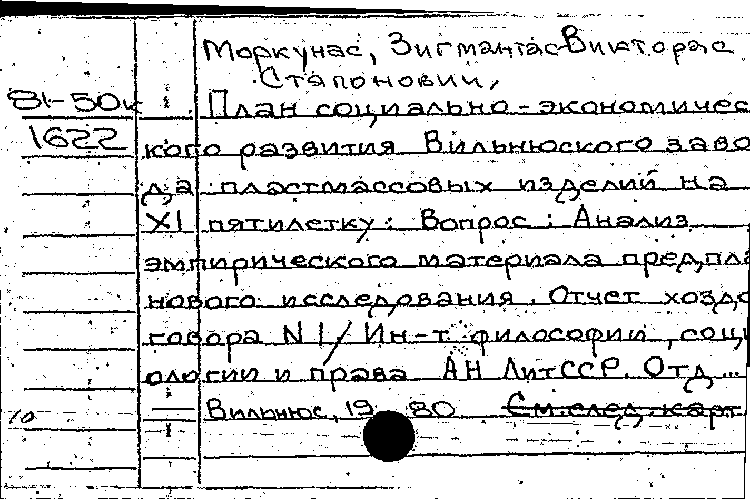 Моркунас, Зигмантас-Викторас
Стяпонович,
81-50к План социально-экономичес
1622 кого развития Вильнюского заво
да пластмассовых изделий на
XI пятилетку: Вопрос: Анализ
эмпирического материала пред,пла
нового исследования. Отчет хоздо
говора N 1/ Ин-т философии, соци
ологии и права АН ЛитССР. Отд...
10 Вильнюс, 19 80 См.след.карт